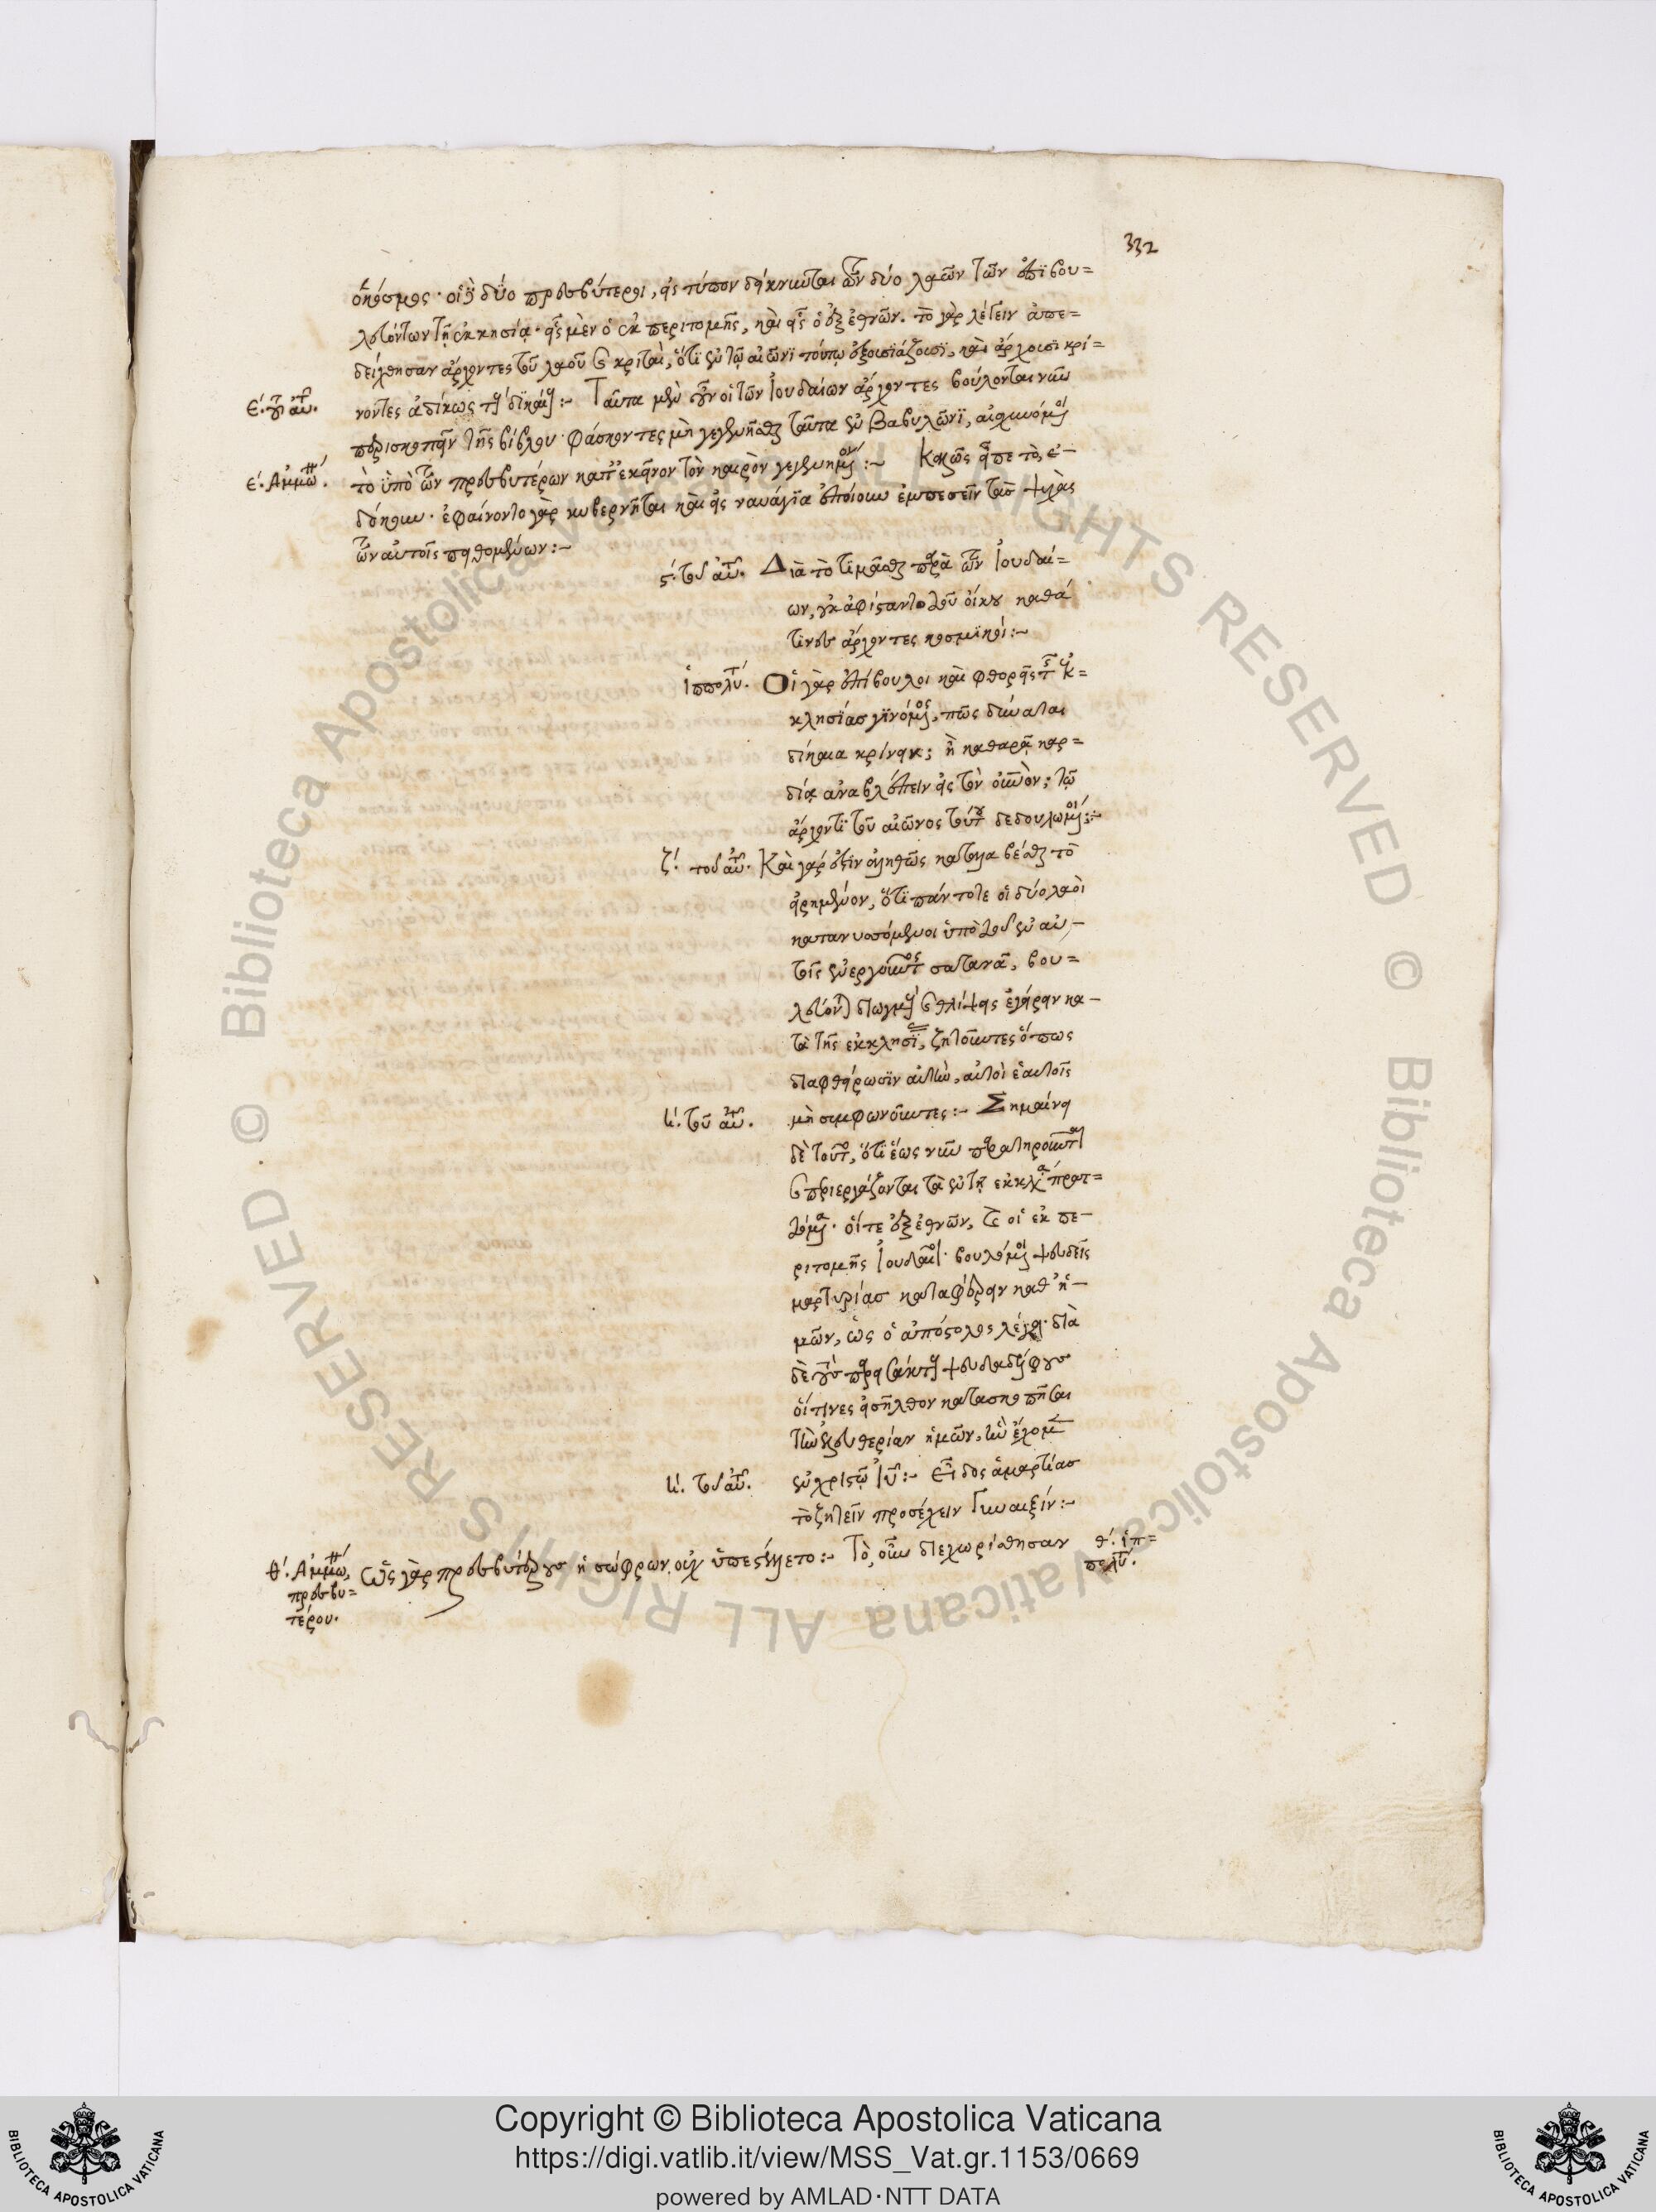 332
ὁ κόσμος· οἱ δὲ δύο πρεσβύτεροι, εἰς τύπον δείκνυνται τῶν δύο λαῶν τῶν ἐπιβου=
λευόντων τῇ ἐκκλησίᾳ· εἷς μὲν ὁ ἐκ περιτομῆς, καὶ εἷς ὁ ἐξ ἐθνῶν. τὸ γὰρ λέγειν ἀπε=
δείχθησαν ἄρχοντες τοῦ λαοῦ καὶ κριταὶ, ὅτι ἐν τῷ αἰῶνι τούτῳ ἐξουσιάζουσι, καὶ ἄρχουσι κρί=
ε΄. τοῦ αὐτοῦ. νοντες ἀδίκως τοὺς δικαίους:- Ταῦτα μὲν οὖν οἱ τῶν Ἰουδαίων ἄρχοντες βούλονται νῦν
περικόπτειν τῆς βίβλου· φάσκοντες μὴ γενέσθαι ταῦτα ἐν Βαβυλῶνι, αἰσχυνόμενοι
ε΄. Ἀμμω. τὸ ὑπὸ τῶν πρεσβυτέρων κατ' ἐκεῖνον τὸν καιρὸν γεγενημένον:- Καλῶς εἶπε τὸ, ἐ-
δόκουν· ἐφαίνοντο γὰρ κυβερνῆται καὶ εἰς ναυάγια ἐποίουν ἐμπεσεῖν τὰς ψυχὰς
τῶν αὐτοῖς πειθομένων:-
ς΄. τοῦ αὐτοῦ. Διὰ τὸ τιμᾶσθαι παρὰ τῶν Ἰουδαί=
ων, οὐκ ἀφίσταντο τοῦ οἴκου καθά
τινες ἄρχοντες κοσμικοί:-
ἱππολύτ. Οἱ γὰρ ἐπίβουλοι καὶ φθορεῖς τῆς ἐκ=
κλησίας γινόμενοι, πῶς δύναται
δίκαια κρίνειν; ἢ καθαρᾷ καρ=
δίᾳ ἀναβλέπειν εἰς τὸν οὐνὸν; τῷ
ἄρχοντι τοῦ αἰῶνος τούτου δεδουλωμένοι:-
ζ΄. τοῦ αὐτοῦ. Καὶ γάρ ἐστιν ἀληθῶς καταλαβέσθαι τὸ
εἰρημένον, ὅτι πάντοτε οἱ δύο λαοὶ
κατανυσσόμενοι ὑπὸ τοῦ ἐν αὐ-
τοῖς ἐνεργοῦντος σατανᾶ, βου=
λεύονται διωγμοὺς καὶ θλίψεις ἐγείρειν κα-
τὰ τῆς ἐκκλησίας, ζητοῦντες ὅπως
διαφθείρωσιν αὐτὴν, αὐτοὶ ἑαυτοῖς
η΄. τοῦ αὐτοῦ. μὴ συμφωνοῦντες:- Σημαίνει
δὲ τοῦτο, ὅτι ἕως νῦν παρατηροῦνται
καὶ περιεργάζονται τὰ ἐν τῇ ἐκκλησίᾳ πρατ=
τόμενα· οἵ τε ἐξ ἐθνῶν, καὶ οἱ ἐκ πε-
ριτομῆς Ἰουδαῖοι· βουλόμενοι ψευδεῖς
μαρτυρίας καταφέρειν καθ' ἡ-
μῶν, ὡς ὁ ἀπόστολος λέγει· διὰ
δὲ τοὺς παρεισάκτους ψευδαδέλφους
οἵτινες εἰσῆλθον κατασκοπῆσαι
τὴν ἐλευθερίαν ἡμῶν, ἣν ἔχομεν
η΄. τοῦ αὐτοῦ. ἐν χριστῷ Ἰῦ:- Εἶδος ἁμαρτίας
τὸ ζητεῖν προσέχειν γυναιξίν:-
θ΄. Ἀμμω, Ὡς γὰρ πρεσβυτέρους ἡ σώφρων οὐχ ὑπεστέλλετο:- Τὸ, οὖν διεχωρίσθησαν θ΄. ἱπ=
πρεσβυ= πολύτ.
τέρου.
Copyright © Biblioteca Apostolica Vaticana
https://digi.vatlib.it/view/MSS_Vat.gr.1153/0669
powered by AMLAD·NTT DATA
BIBLIOTECA APOSTOLICA VATICANA
BIBLIOTECA APOSTOLICA VATICANA
© Biblioteca Apostolica Vaticana ALL RIGHTS RESERVED
© Biblioteca Apostolica Vaticana ALL RIGHTS RESERVED